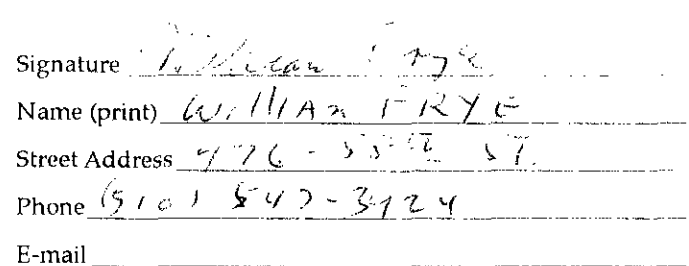 Signature William Frye
Name (print) WilliAm FRYE
Street Address 476 - 55th ST.
Phone (510) 547-3124
E-mail